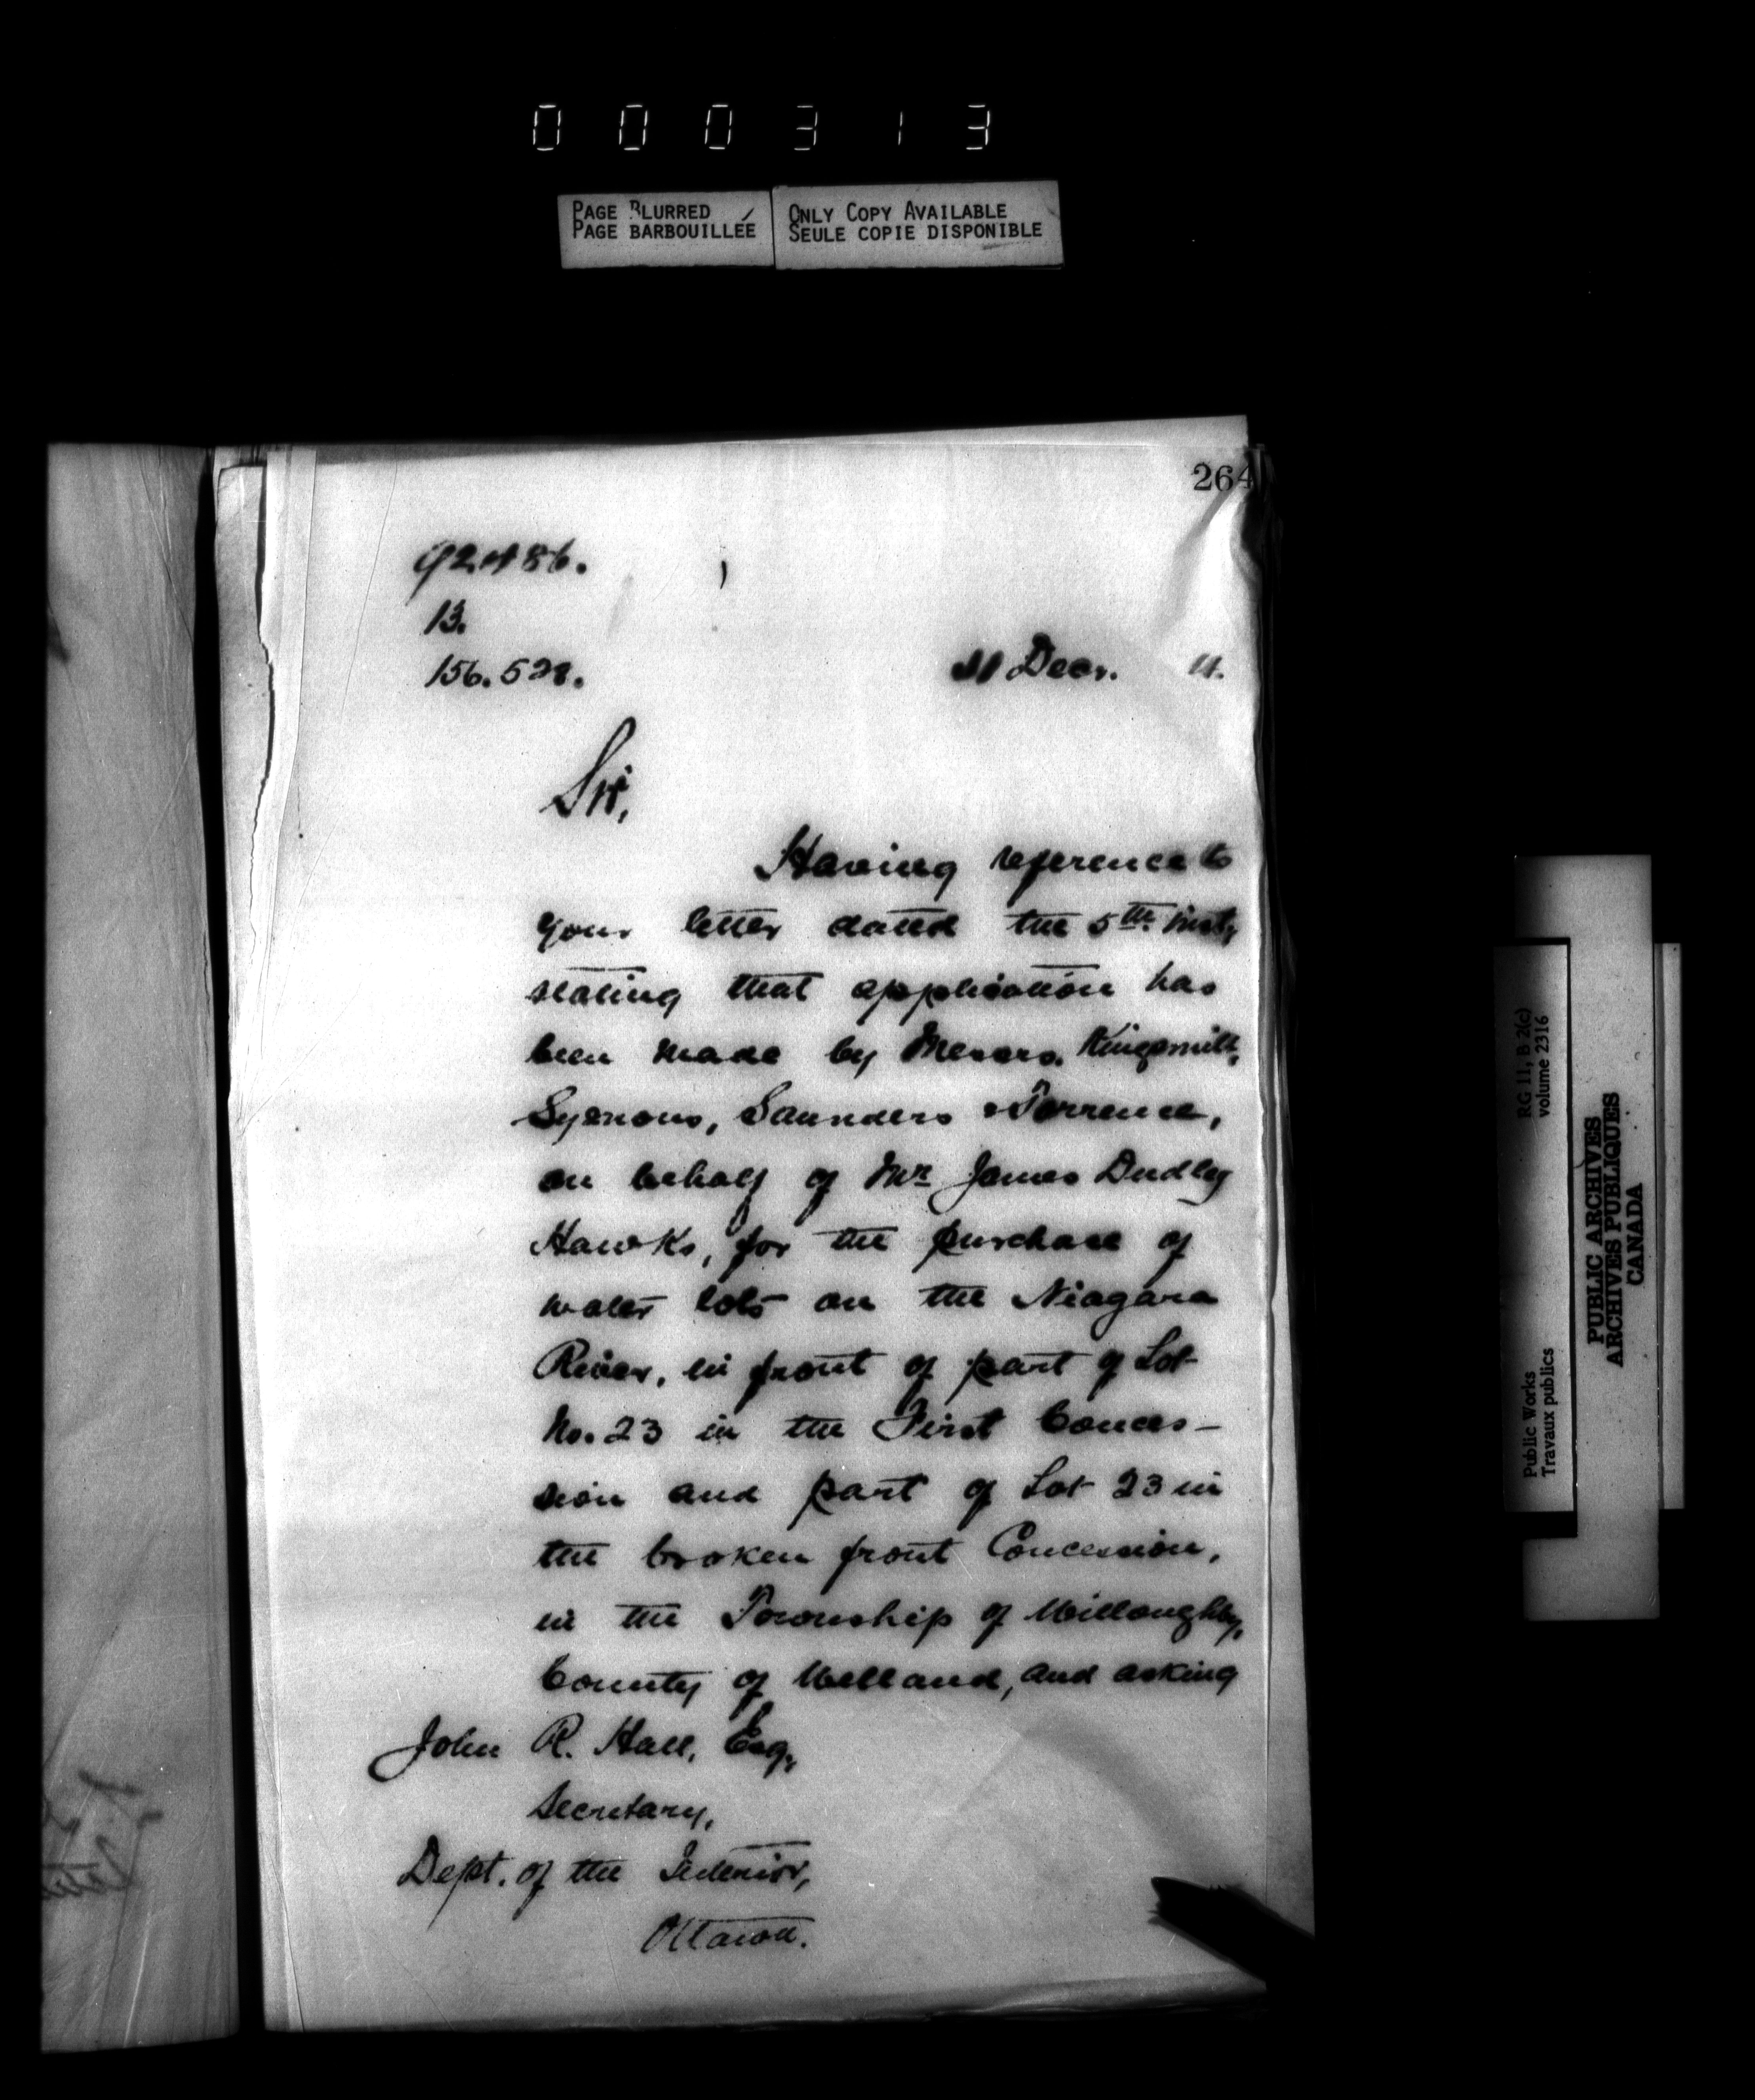 000313
PAGE BLURRED
PAGE BARBOUILLÉE
ONLY COPY AVAILABLE
SEULE COPIE DISPONIBLE
264
92486.
13.
156.528.
Decr.
Sir,
Having reference to
your letter dated the 5th. inst,
stating that application has
been made by Messrs. Kingsmill,
Symons, Saunders & Torrence,
on behalf of Mr James Dudley
Hawks, for the purchase of
water lots on the Niagara
River, in front of part of Lot
No. 23 in the First Conces-
sion and part of Lot 23 in
the broken front Concession,
in the Township of Willoughby,
County of Welland, and asking
John R. Hall, Esq,
Secretary,
Dept. of the Interior,
Ottawa.
RG 11, B 2(c)
volume 2316
Public Works
Travaux publics
PUBLIC ARCHIVES
ARCHIVES PUBLIQUES
CANADA